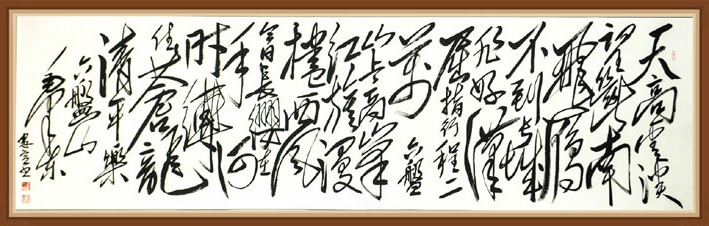 天高雲淡
望斷南
飛雁
不到長城
非好漢
屈指行程二
萬 六盤
山上高峰
紅旗漫
捲西風
今日長纓在
手何
時縛
住蒼龍
清平樂
六盤山
毛澤東